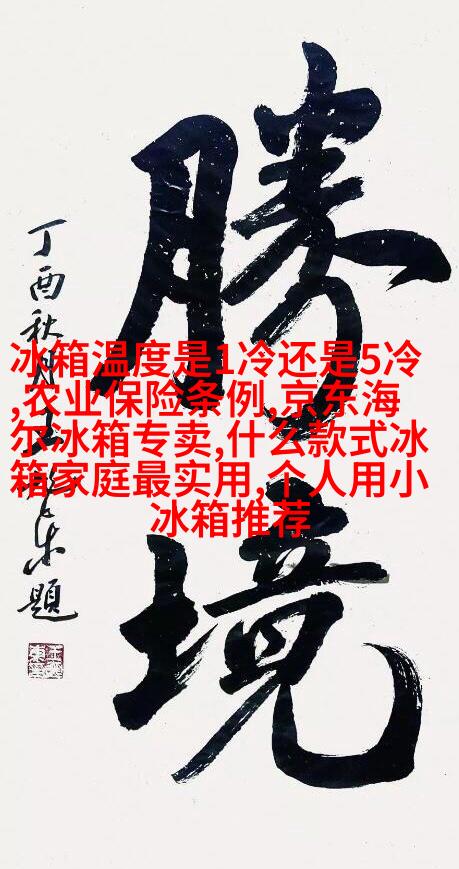 勝境
丁酉秋月
題
冰箱温度是1冷还是5冷
,农业保险条例,京东海
尔冰箱专卖,什么款式冰
箱家庭最实用,个人用小
冰箱推荐